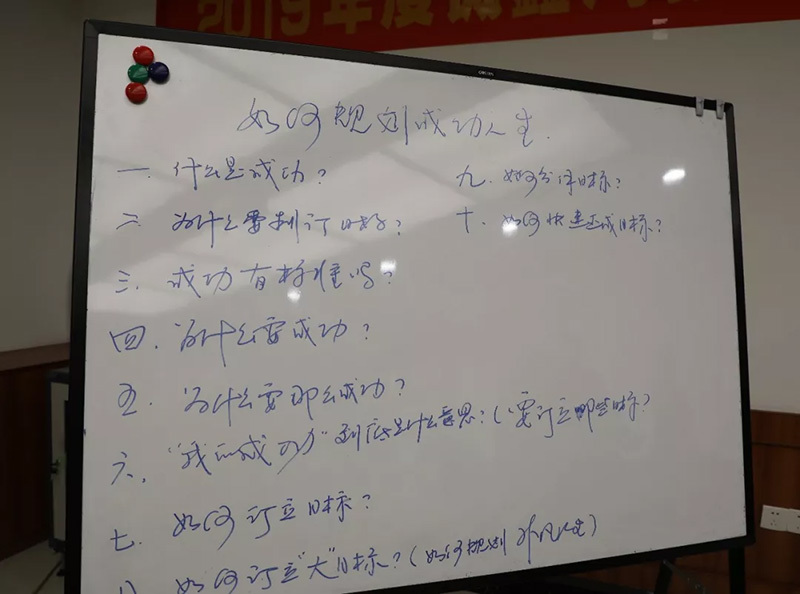 2019年度
如何规划成功人生.
一. 什么是成功?
二. 为什么要制订目标?
三. 成功有标准吗?
四. 为什么要成功?
五. 为什么要那么成功?
六. “我的成功”到底是什么意思?(要订立哪些目标?
七. 如何订立目标?
八 如何订立“大”目标?(如何规划非凡人生)
九. 如何分详目标?
十. 如何快速达成目标?